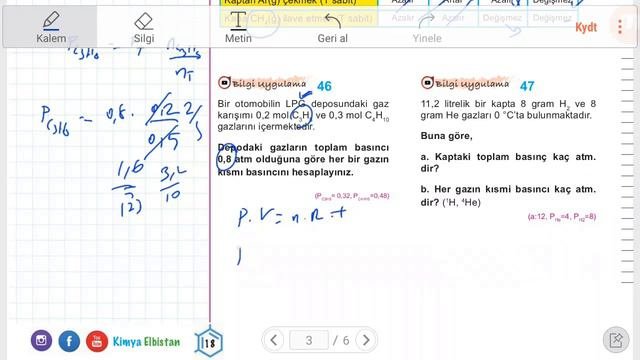 Kaptan Ar(g) çekmek (T sabit)
Azalır
Artar
Azalır
Değişmez
Kaba CH₄(g) ilave etmek (T sabit)
Değişmez
Değişmez
Kalem
Silgi
Metin
Geri al
Yinele
Kydt
P
n
nT
P C₃H₈ = 0,8 . 0,2 2/5
0,5
1,6 3,2
5 10
(2)
Bilgi Uygulama 46
Bir otomobilin LPG deposundaki gaz
karışımı 0,2 mol C₃H₈ ve 0,3 mol C₄H₁₀
gazlarını içermektedir.
Depodaki gazların toplam basıncı
0,8 atm olduğuna göre her bir gazın
kısmi basıncını hesaplayınız.
(P C₃H₈= 0,32, P C₄H₁₀=0,48)
P. V = n. R. t
Bilgi Uygulama 47
11,2 litrelik bir kapta 8 gram H₂ ve 8
gram He gazları 0 °C'ta bulunmaktadır.
Buna göre,
a. Kaptaki toplam basınç kaç atm.
dir?
b. Her gazın kısmi basıncı kaç atm.
dir? (¹H, ⁴He)
(a:12, P He=4, P H2=8)
Kimya Elbistan
18
3 / 6